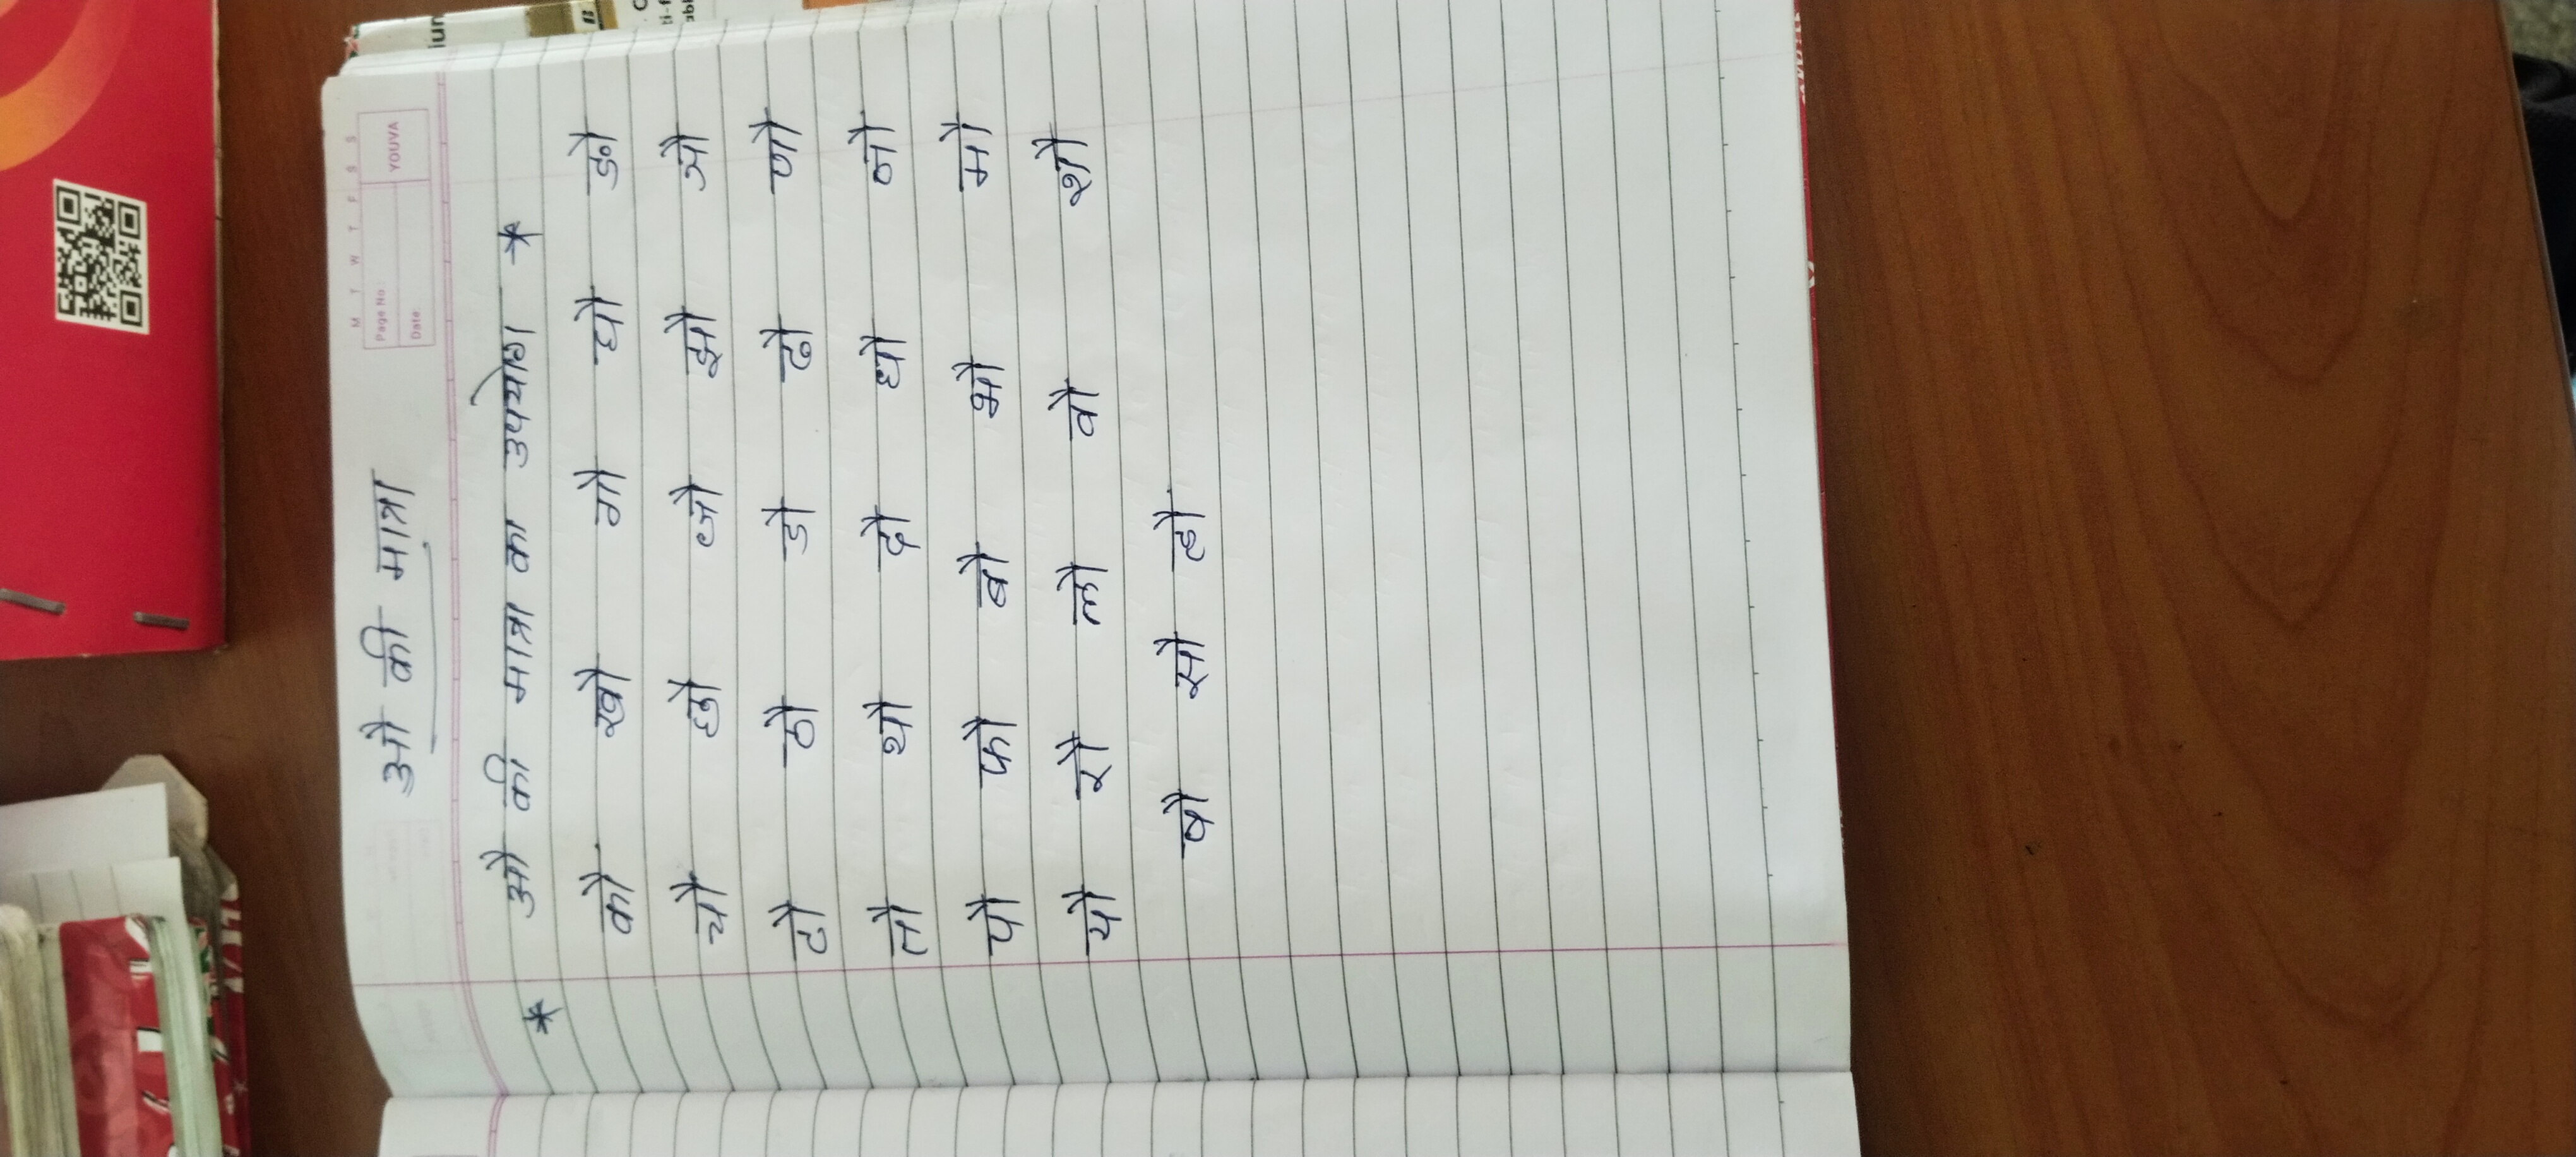 औ की मात्रा
* औ की मात्रा का उपयोग *
कौ खौ गौ घौ ङौ
चौ छौ जौ झौ ञौ
टौ ठौ डौ ढौ णौ
तौ थौ दौ धौ नौ
पौ फौ बौ भौ मौ
यौ रौ लौ वौ शौ
षौ सौ हौ
M T W T F S S
Page No.:
Date:
YOUVA